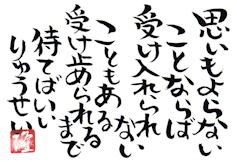 思いもよらない
ことならば
受け入れられ
ない
こともある
受け止められる
まで
待てばいい
りゅうせい